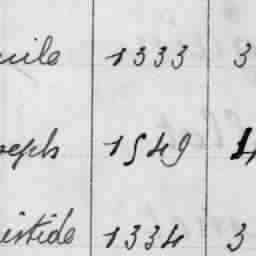 cile 1333 3
oseph 1549 4
istide 1334 3